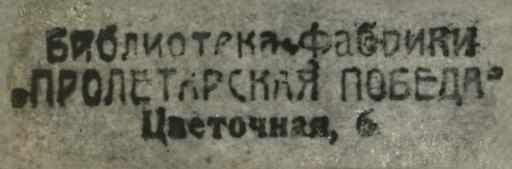 Библиотека фабрики
„ПРОЛЕТАРСКАЯ ПОБЕДА"
Цветочная, 6